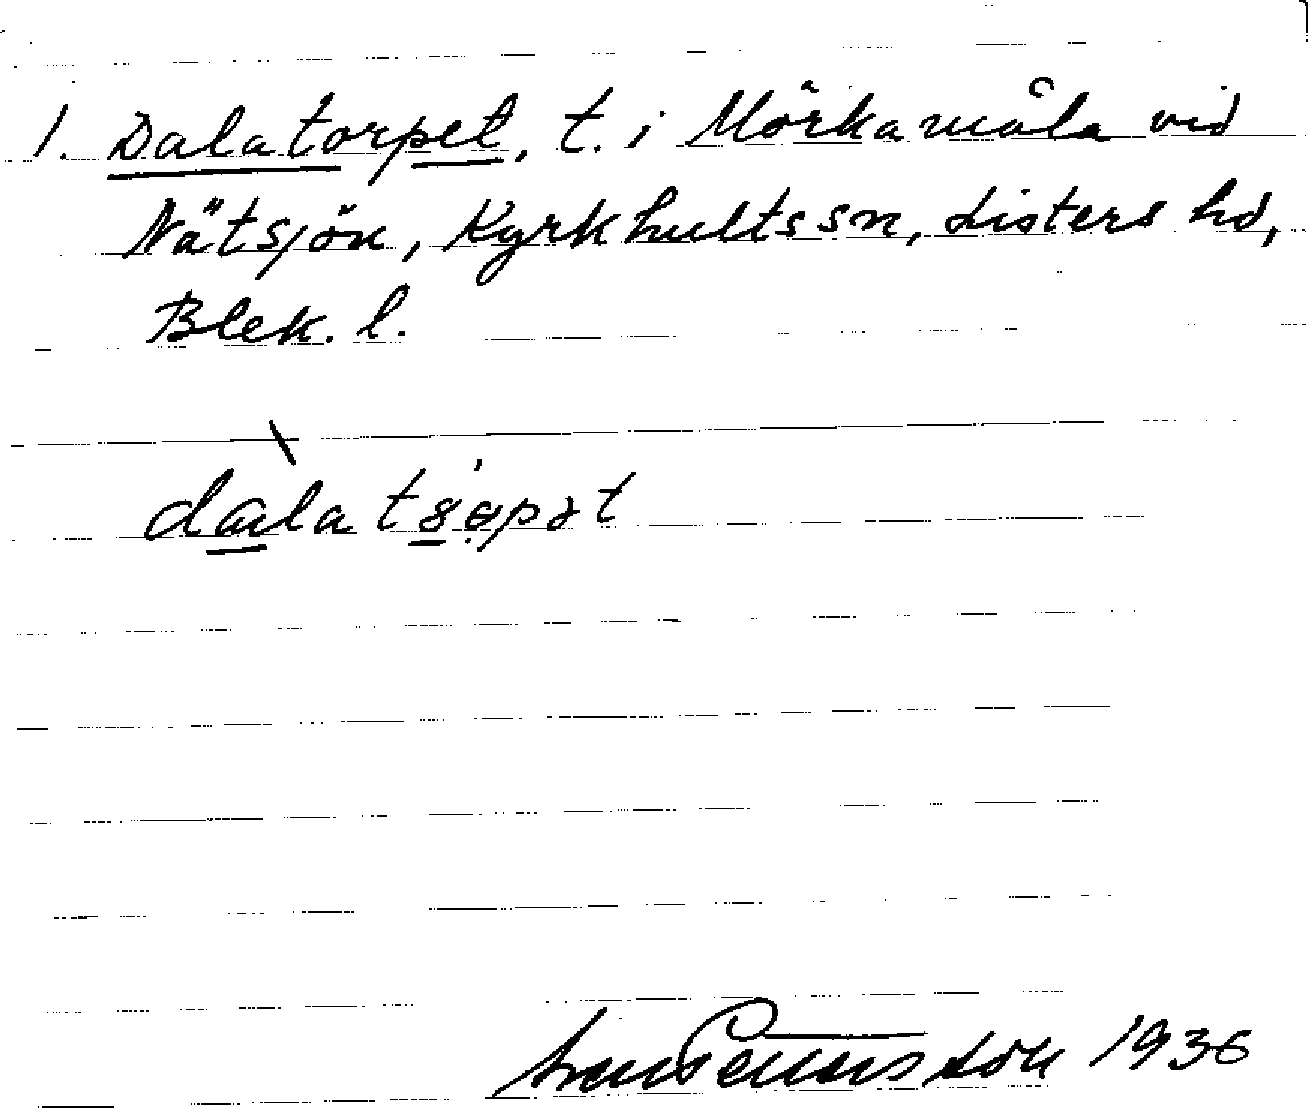 1. Dalatorpet, t. i Mörkamåla vid
Nätsjön, Kyrkhults sn, Listers hd,
Blek. l.
1936